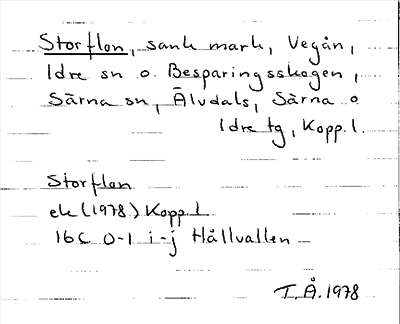 Storflon, sank mark, Vegån,
Idre sn o. Besparingsskogen,
Särna sn, Älvdals, Särna o
Idre tg, Kopp. l.
Storflon
ek (1978) Kopp. l
16C 0-1 i-j Hållvallen
T.Å. 1978